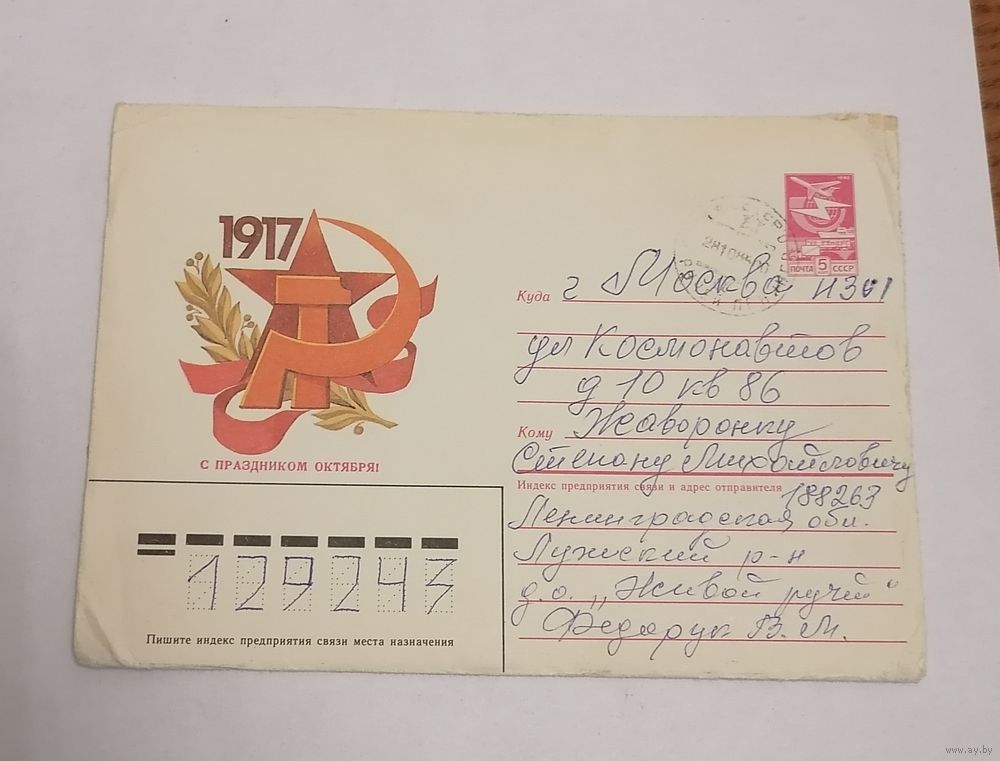 1917
С ПРАЗДНИКОМ ОКТЯБРЯ!
ПОЧТА 5 СССР
Куда г Москва И361
ул Космонавтов
д 10 кв 86
Кому Жаворонку
Степану Михайловичу
Индекс предприятия связи и адрес отправителя 188263
Ленинградская обл.
Лужский р-н
д.о. „Живой ручей“
Федорук В. М.
129243
Пишите индекс предприятия связи места назначения
www.ay.by